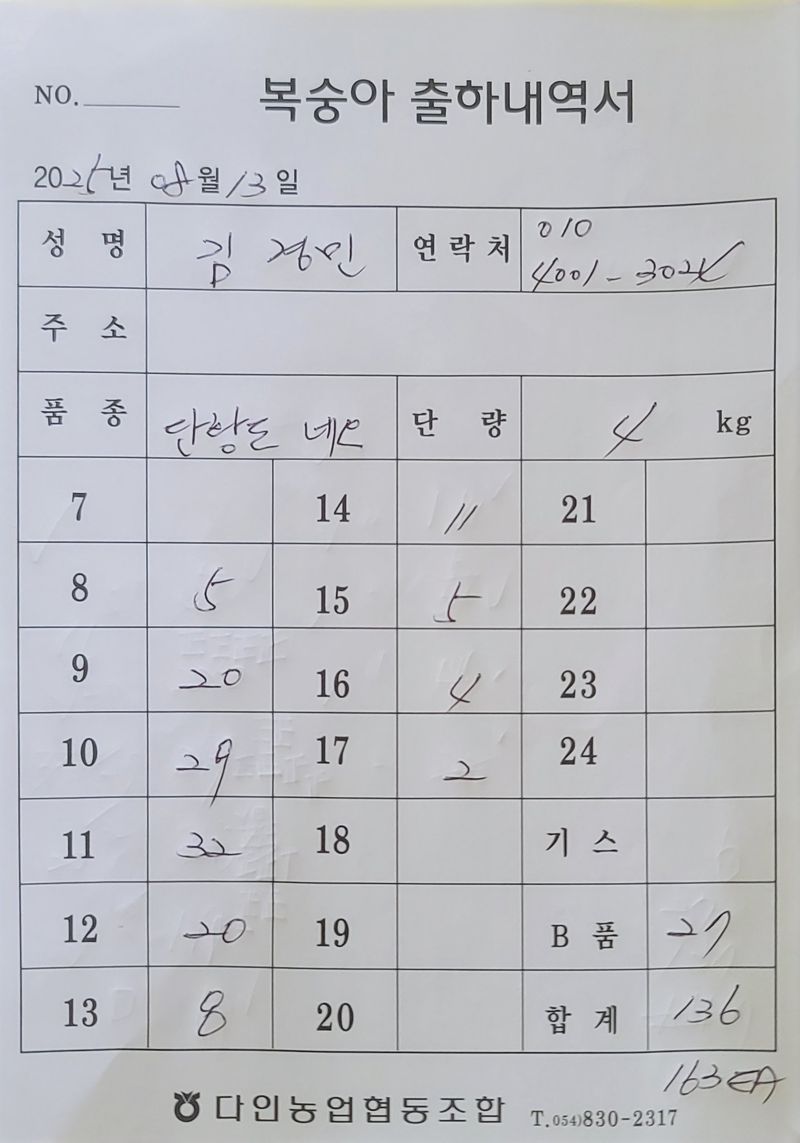 NO.
복숭아 출하내역서
2025년 08월 13일
성 명 김 경민 연락처 010
4001-3024
주 소
품 종 단황도 네오 단 량 4 kg
7 14 11 21
8 5 15 5 22
9 20 16 4 23
10 29 17 2 24
11 32 18 기 스
12 20 19 B 품 27
13 8 20 합 계 136
163 EA
다인농업협동조합 T.054)830-2317